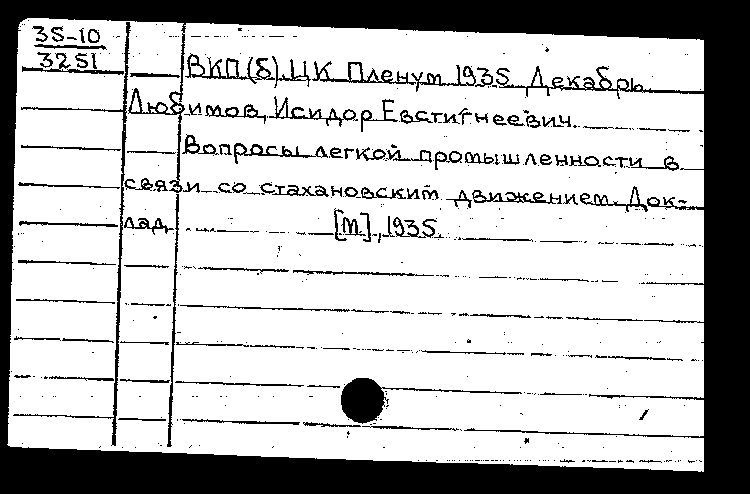 35-10
3251
ВКП(б). ЦК Пленум 1935 Декабрь
Любимов, Исидор Евстигнеевич.
Вопросы легкой промышленности в
связи со стахановским движением. Док-
лад. [М], 1935.